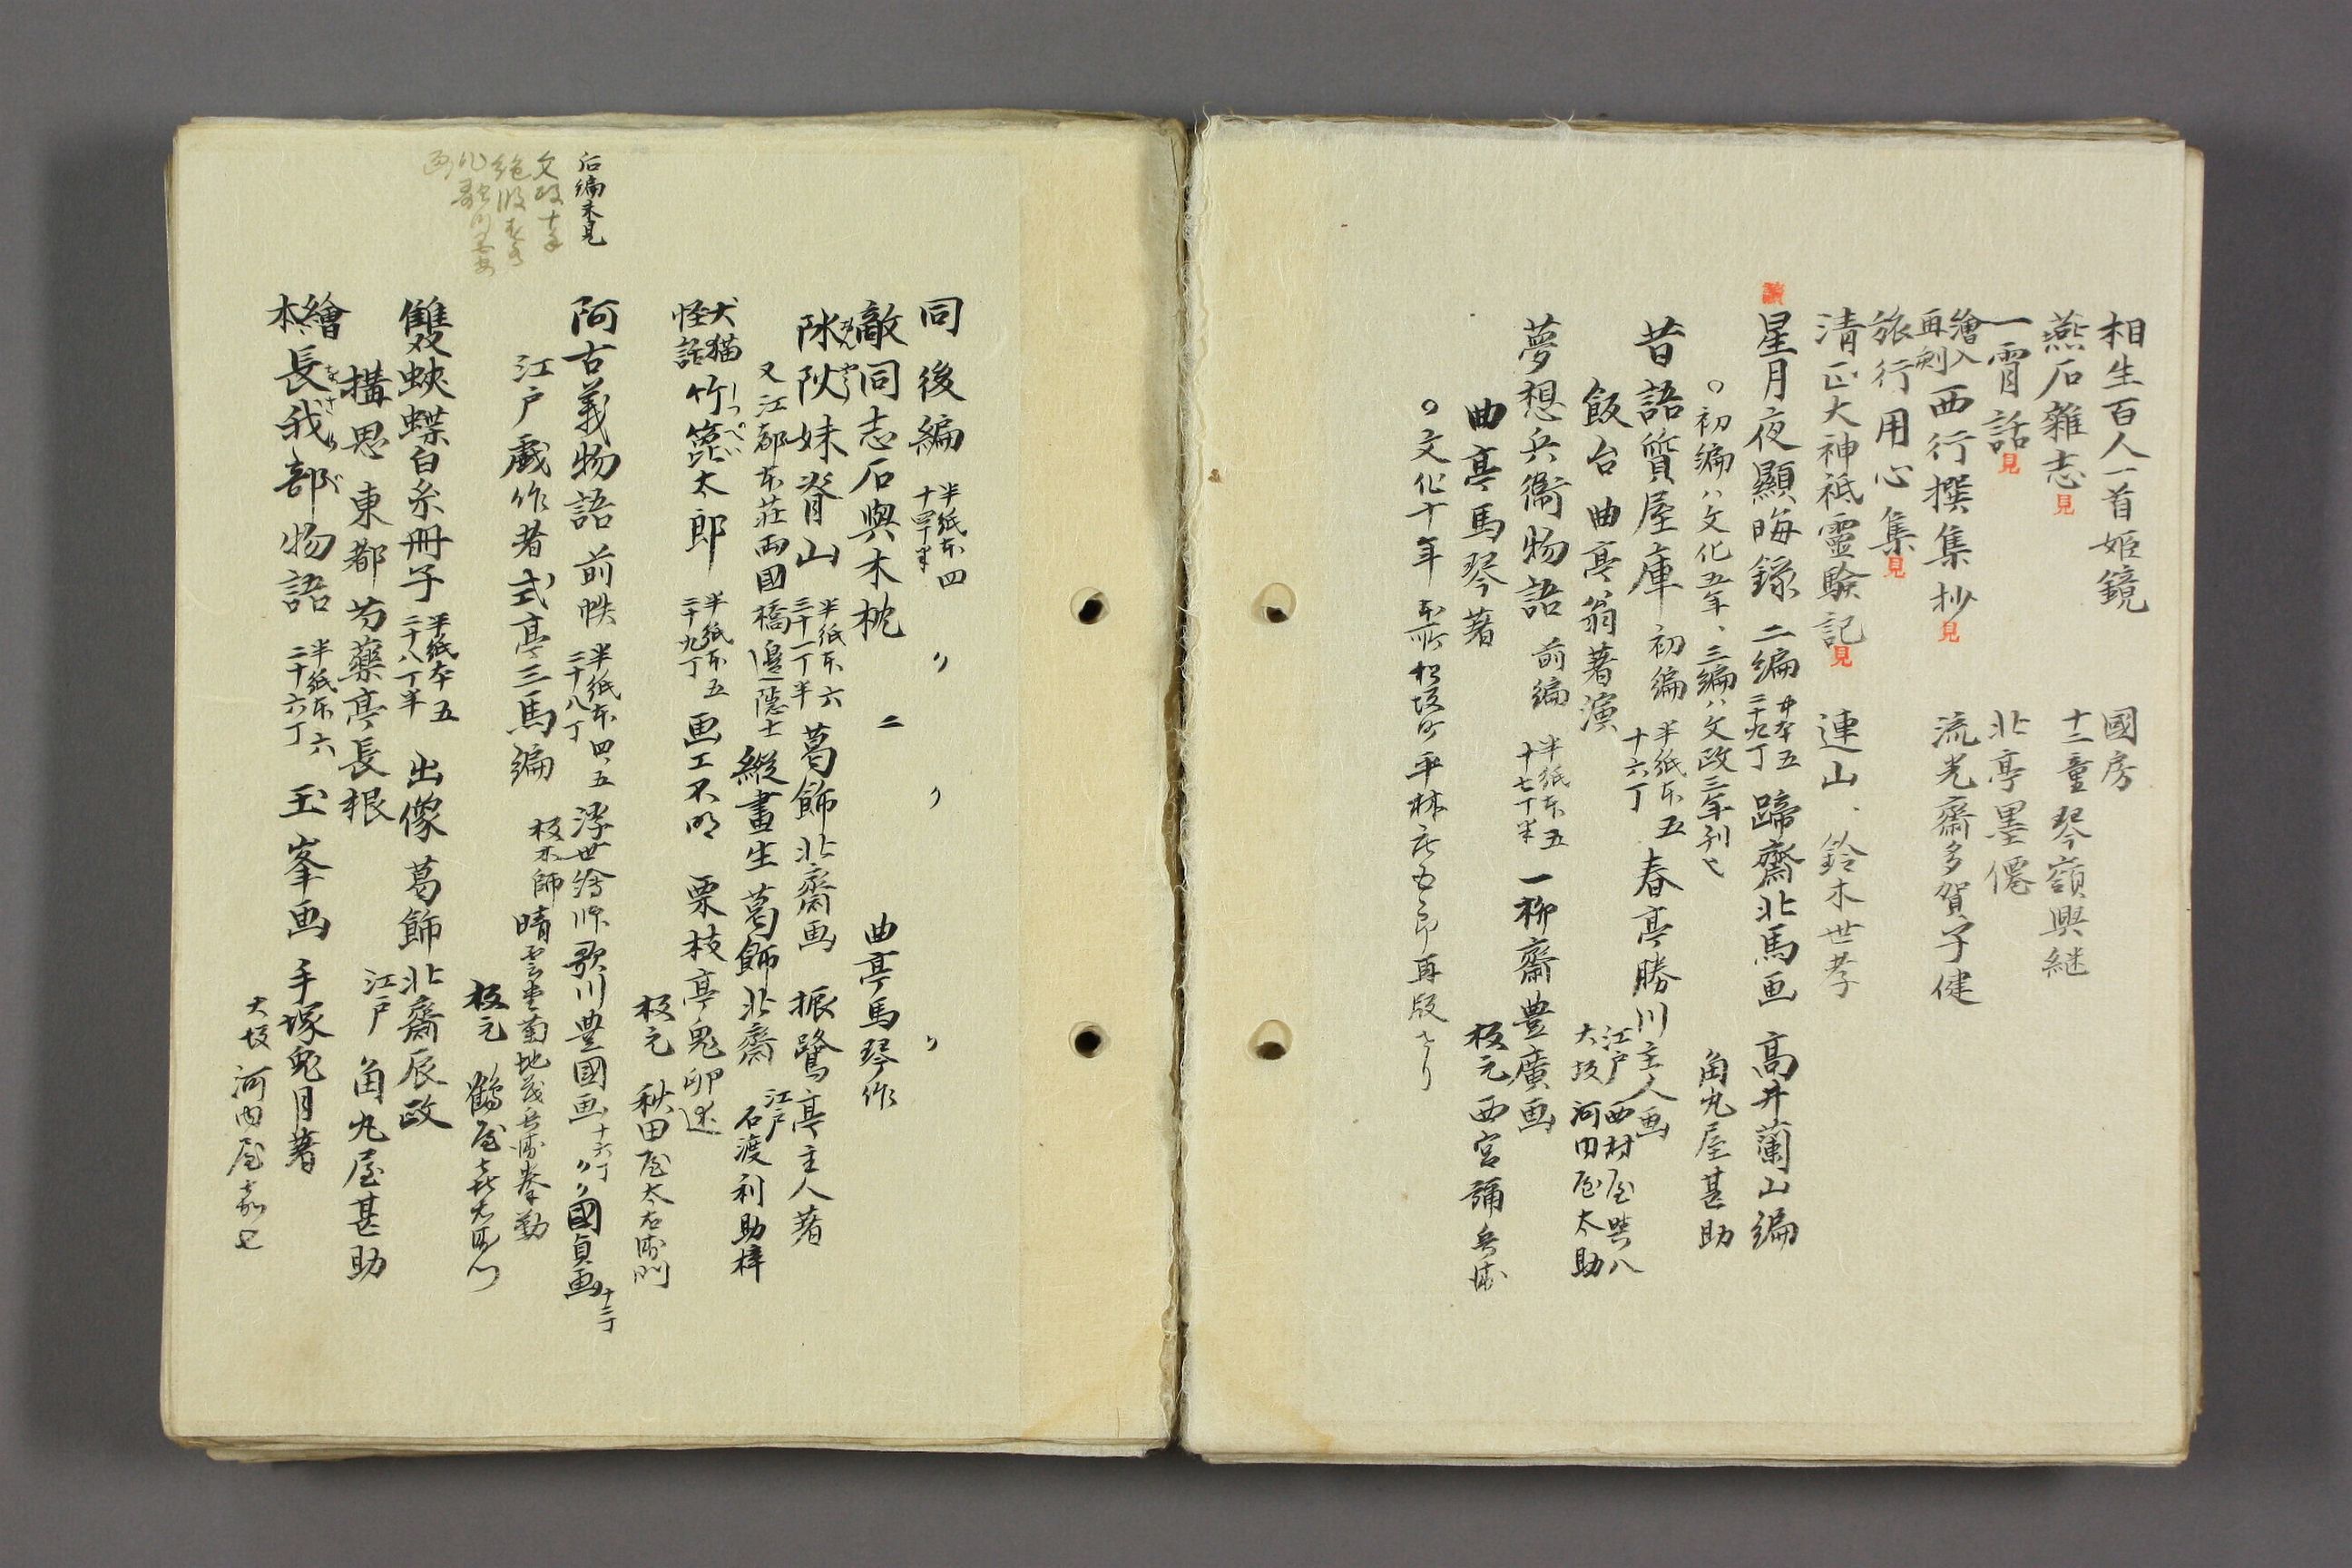 相生百人一首姫鏡 國房
燕石雜志 見 十二童琴嶺興継
一宵話 見 北亭墨僊
繪入再刻 西行撰集抄 見 流光齋多賀子健
旅行用心集 見
清正大神祇靈驗記 見 連山、鈴木世孝
讀 星月夜顯晦錄 二編 中本五 二十九丁 蹄齋北馬画 高井蘭山編
○初編ハ文化五年、三編ハ文政三年刊也 角丸屋甚助
昔語質屋庫 初編 半紙本五 十六丁 春亭勝川主人画
飯台曲亭翁著演 江戸 西村屋與八 大坂 河内屋太助
夢想兵衞物語 前編 半紙本五 十七丁半 一柳齋豊廣画
曲亭馬琴著 板元 西宮彌兵衛
○文化十年 本所松坂町平林庄五郎再版セり
同後編 半紙本四 十四丁半 〃 〃 〃
敵同志石與木枕 二 曲亭馬琴作
陬阦妹脊山 半紙本六 三十一丁半 葛飾北齋画 振鷺亭主人著
又江都本莊両國橋邉隠士 縦畫生葛飾北齋 江戸 石渡利助梓
犬猫怪話 竹箆太郎 しつぺい 半紙本五 二十九丁 画工不明 栗枝亭鬼卵述
板元 秋田屋太右衛門
后編未見
阿古義物語 前帙 半紙本四、五 二十八丁 浮世繪師歌川豊國画 十六丁 〃國貞画 十二丁
江戸戯作者式亭三馬編 板木師 晴雲堂菊地茂兵衛拳勒
板元 鶴屋喜右衛門
雙蛺蝶白糸冊子 半紙本五 二十八丁半 出像 葛飾北齋辰政
構思 東都 芍藥亭長根 江戸 角丸屋甚助
繪本 長我部物語 をさかべ 半紙本六 二十六丁 玉峯画 手塚兎月著
大坂 河内屋嘉七